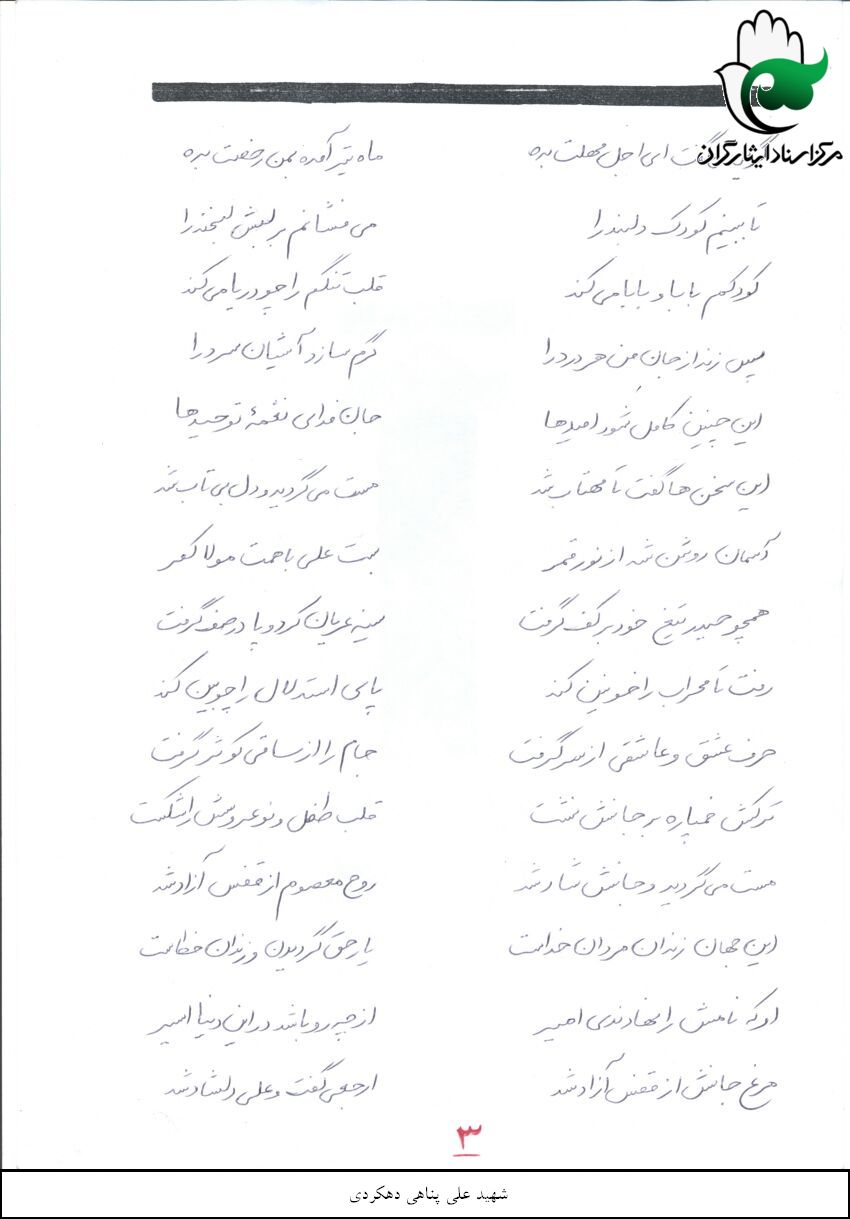 مرکز اسناد ایثارگران
گفت ای اجل مهلت بده ماه تیر آمده بمن رخصت بده
تا ببینم کودک دلبندرا می فشانم بر لبش لبخندرا
کودکم بابا و بابا می کند قلب تنگم را چو دریا می کند
پس زند از جان من هر دردرا گرم سازد آشیان سردرا
این چنین کامل شود امیدها جان فدای نغمهٔ توحیدها
این سخن ها گفت تا مهتاب شد مست می گردید و دل بی تاب شد
آسمان روشن شد از نور قمر بست علی با همت مولا کمر
همچو حیدر تیغ خود بر کف گرفت سینه عریان کرد و پا در صف گرفت
رفت تا محراب را خونین کند پای استدلال را چوبین کند
حرف عشق و عاشقی از سر گرفت جام را از ساقی کوثر گرفت
ترکش خمپاره بر جانش نشت قلب طفل و نو عروسش را شکست
مست می گردید و جانش شاد شد روح معصوم از قفس آزاد شد
این جهان زندان مردان خداست یار حق گردیدن و زندان خطاست
او که نامش را نهادندی امیر از چه رو باشد در این دنیا اسیر
مرغ جانش از قفس آزاد شد ارجعی گفت و علی دلشاد شد
۳
شهید علی پناهی دهکردی